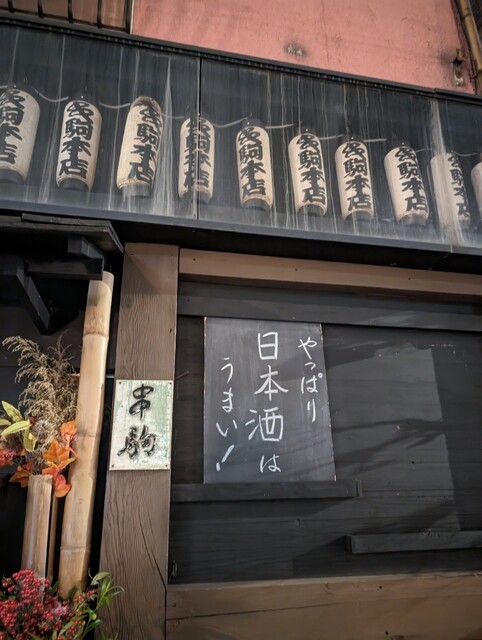 串駒本店
串駒本店
串駒本店
串駒本店
串駒本店
串駒本店
串駒本店
串駒本店
やっぱり
日本酒は
うまい!
串駒